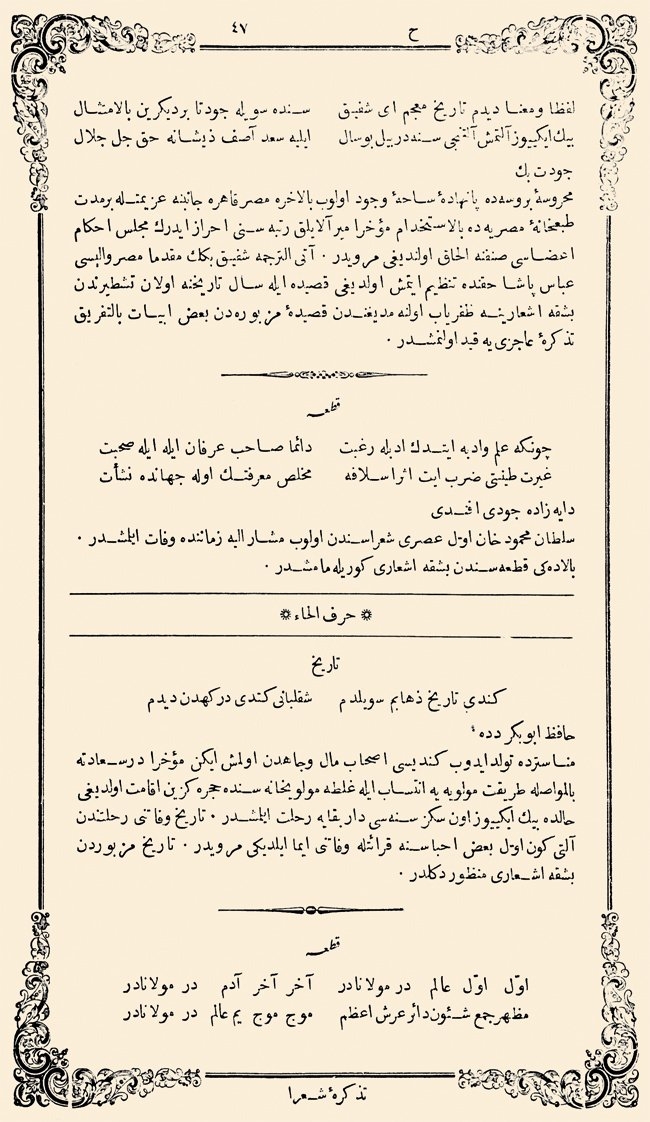 ح ٤٧
لفظا ومعنا ديدم تاريخ معجم اى شفيق سنده سويله جودتا برديكرين بالامتثال
بيك ايكيوز آلتمش آلتنجى سنه دربيل بوسال ايليه سعد آصف ذيشانه حق جل جلال
جودت بك
محروسهٔ بروسه‌ده پانهادهٔ ساحهٔ وجود اولوب بالاخره مصر قاهره جانبنه عزيمتله برمدت
طبعخانهٔ مصريه ده بالاستخدام مؤخرا ميرآلايلق رتبه سنى احراز ايدرك مجلس احكام
اعضاسى صنفنه الحاق اولنديغى مرويدر ٠ آتى الترجمه شفيق بكك مقدما مصر واليسى
عباس پاشا حقنده تنظيم ايتمش اولديغى قصيده ايله سال تاريخنه اولان تشطيرندن
بشقه اشعارينه ظفرياب اولنه مديغندن قصيدهٔ مزبوره‌دن بعض ابيات بالتفريق
تذكرهٔ عاجزى يه قيد اولنمشدر ٠
قطعه
چونكه علم وادبه ايتدك اديله رغبت دائما صاحب عرفان ايله ايله صحبت
غيرت طينتى ضرب ايت اثرا سلافه مخلص معرفتك اوله جهانده نشأت
دايه زاده جودى افندى
سلطان محمود خان اول عصرى شعراسندن اولوب مشار اليه زماننده وفات ايلمشدر ٠
بالاده‌كى قطعه سندن بشقه اشعارى كوريله مامشدر ٠
❊ حرف الحاء ❊
تاريخ
كندى تاريخ ذهابم سويلدم شقلبانى كتدى دركهدن ديدم
حافظ ابوبكر دده
مناسترده تولد ايدوب كنديسى اصحاب مال وجاهدن اولمش ايكن مؤخرا درسعادته
بالمواصله طريقت مولويه يه انتساب ايله غلطه مولويخانه سنده حجره كزين اقامت اولديغى
حالده بيك ايكيوز اون سكز سنه سى داربقايه رحلت ايلمشدر ٠ تاريخ وفاتنى رحلتندن
آلتى كون اول بعض احباسنه قرائتله وفاتنى ايما ايلديكى مرويدر ٠ تاريخ مزبوردن
بشقه اشعارى منظور دكلدر ٠
قطعه
اوّل اوّل عالم در مولانادر آخر آخر آدم در مولانادر
مظهر جمع شئون دائر عرش اعظم موج موج يم عالم در مولانادر
تذكرهٔ شعرا